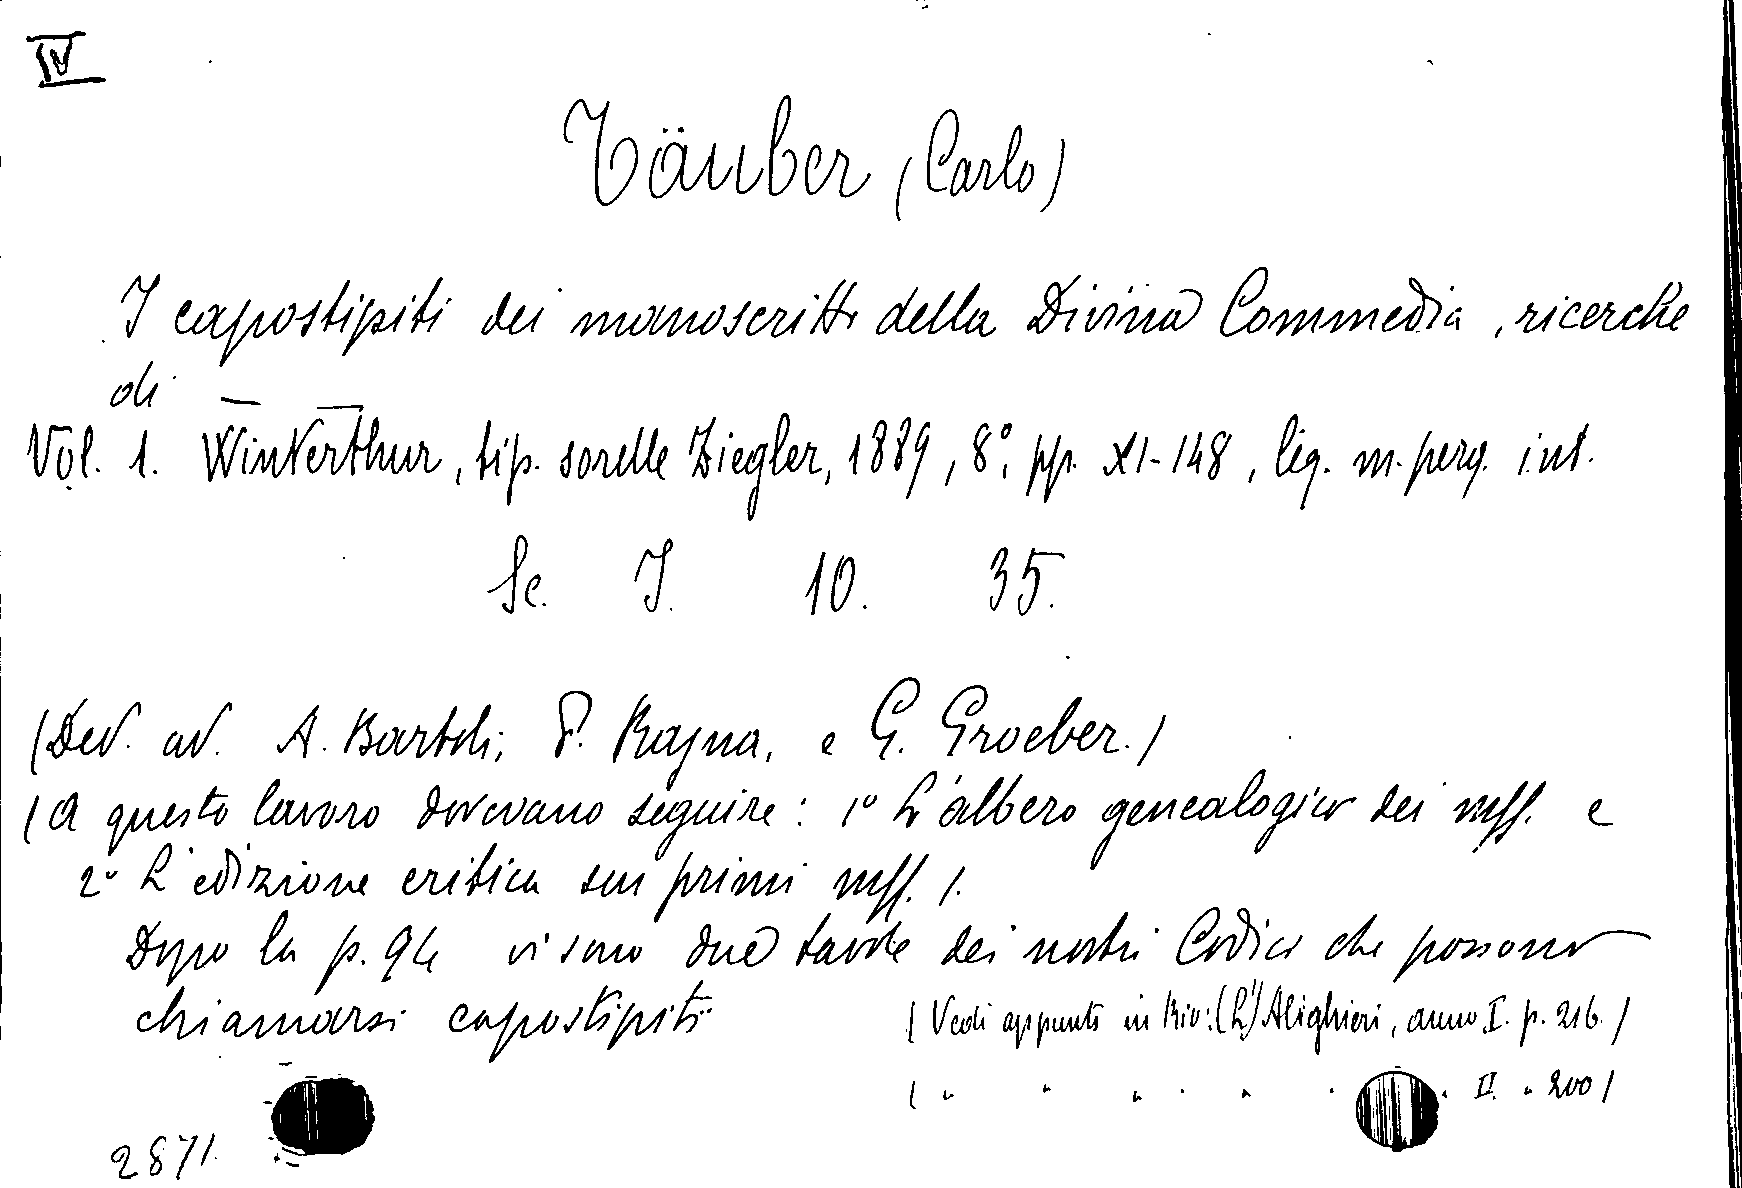 IV
Täuber (Carlo)
I capostipiti dei manoscritti della Divina Commedia, ricerche
di — —
Vol. 1. Winterthur, tip. sorelle Ziegler, 1889, 8°, pp. XI-148, leg. m. perg. int.
Sc. I. 10. 35.
(Ded. ad. A. Bartoli, P. Rajna, e G. Groeber.)
(A questo lavoro dovevano seguire: 1° L'albero genealogico dei mss. e
2° L'edizione critica sui primi mss.).
Dopo la p. 94 vi sono due tavole dei nostri Codici che possono
chiamarsi capostipiti
(Vedi appunti in Riv: (L') Alighieri, anno I. p. 216.)
( " " " " " " " II. " 200)
2871.